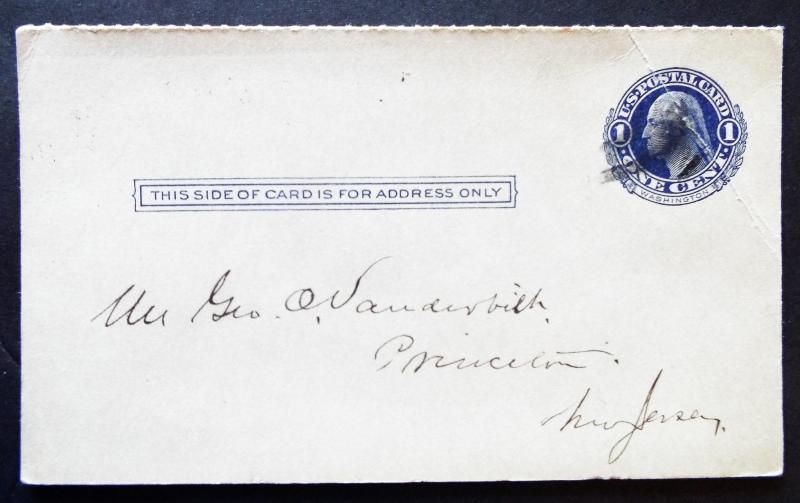 U.S. POSTAL CARD
1 1
ONE CENT
WASHINGTON
THIS SIDE OF CARD IS FOR ADDRESS ONLY
Mr Geo. O. Vanderbilt.
Princeton.
New Jersey.